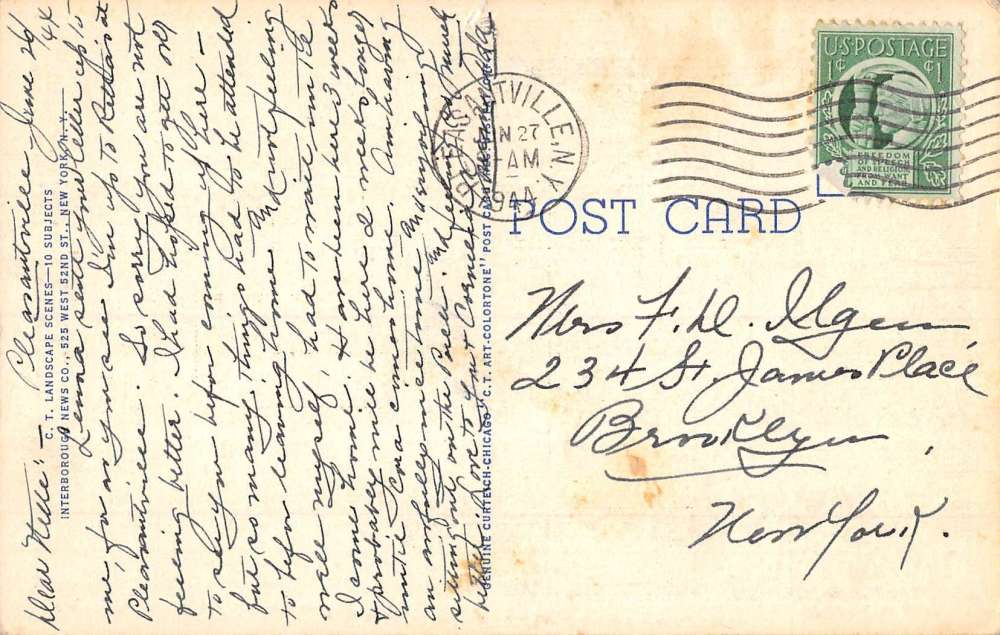 Pleasantville June 26
44
Dear Nelle: –
Lenna sent your letter up to
me, for as you see I'm up to Rettas at
Pleasantville. So sorry you are not
feeling better. I had hoped to get over
to see you before coming up here –
but so many things had to be attended
to before leaving home. Not feeling
well myself, had to wait from the
I come home. Have been here 3 weeks
& probably will be here 2 weeks longer
until Cora comes home. Am having
an awfully nice time. Mostly
sitting out on the Porch.
Love to you & Cornelia
C. T. LANDSCAPE SCENES—10 SUBJECTS
INTERBOROUGH NEWS CO., 525 WEST 52ND ST., NEW YORK, N. Y.
GENUINE CURTEICH-CHICAGO "C. T. ART-COLORTONE" POST CARD
PLEASANTVILLE, N.Y.
JUN 27
AM
1944
U.S. POSTAGE
1¢ ¢1
FREEDOM
OF SPEECH
AND RELIGION,
FROM WANT
AND FEAR
POST CARD
Mrs F. D. Ilgen
234 St. James Place
Brooklyn,
New York.